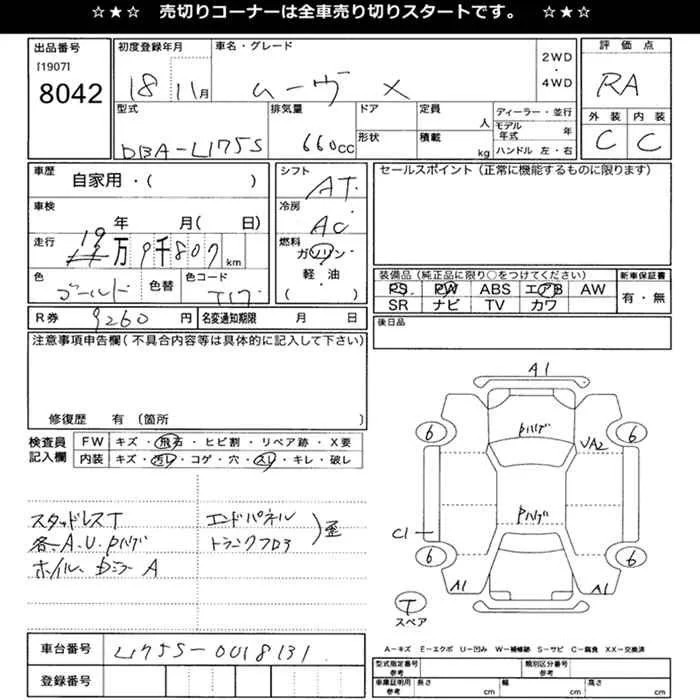 ☆★☆ 売切りコーナーは全車売り切りスタートです。 ☆★☆
出品番号
[1907]
8042
初度登録年月
18 11月
車名・グレード
ムーヴ X
2WD
・
4WD
評価点
RA
外装 内装
C C
型式
DBA-L175S
排気量
660cc
ドア
形状
定員
人
積載
kg
ディーラー・並行
モデル年式 年
ハンドル 左・右
車歴
自家用・( )
車検
年 月( 日)
走行
19万9千807km
色
ゴールド
色替
色コード
T17
シフト
AT
冷房
AC
燃料
ガソリン
軽・油
( ・ )
セールスポイント(正常に機能するものに限ります)
装備品(純正品に限り○をつけてください)
PS PW ABS エアB AW
SR ナビ TV カワ
新車保証書
有・無
R券 9260円
名変通知期限 月 日
後日品
注意事項申告欄(不具合内容等は具体的に記入して下さい)
修復歴 有(箇所 )
検査員
記入欄
FW キズ・飛石・ヒビ割・リペア跡・X要
内装 キズ・汚レ・コゲ・穴・スレ・キレ・破レ
スタッドレスT
各、A.U.Pハゲ
ホイル、Dミラー A
エンドパネル
トランクフロア
)歪
A1
6
6
Pハゲ
UA2
Pハゲ
C1
6
6
A1
A1
T
スペア
車台番号
L175S-0018131
登録番号
A-キズ E-エクボ U-凹み W-補修跡 S-サビ C-腐食 XX-交換済
型式指定番号
参考
類別区分番号
参考
車庫証明用
参考
長さ cm
幅 cm
高さ cm